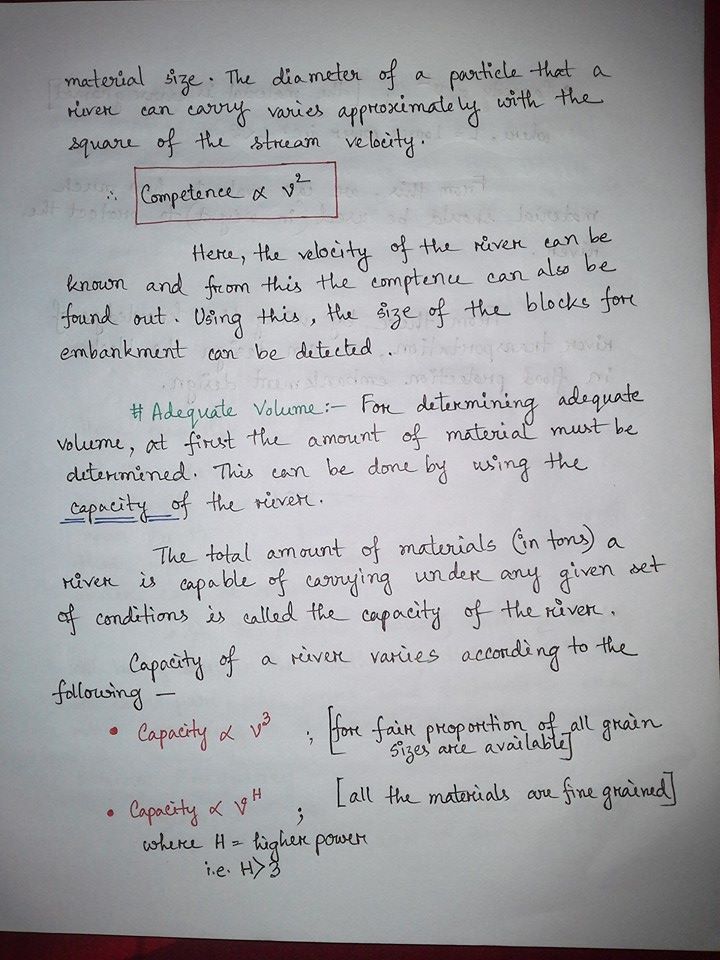 material size. The diameter of a particle that a
river can carry varies approximately with the
square of the stream velocity.
∴ Competence ∝ v²
Here, the velocity of the river can be
known and from this the comptence can also be
found out. Using this, the size of the blocks for
embankment can be detected..
# Adequate Volume:- For determining adequate
volume, at first the amount of material must be
determined. This can be done by using the
capacity of the river.
The total amount of materials (in tons) a
river is capable of carrying under any given set
of conditions is called the capacity of the river.
Capacity of a river varies according to the
following —
• Capacity ∝ v³ ; [for fair proportion of all grain
sizes are available]
• Capacity ∝ v^H ; [all the materials are fine grained]
where H = higher power
i.e. H>3